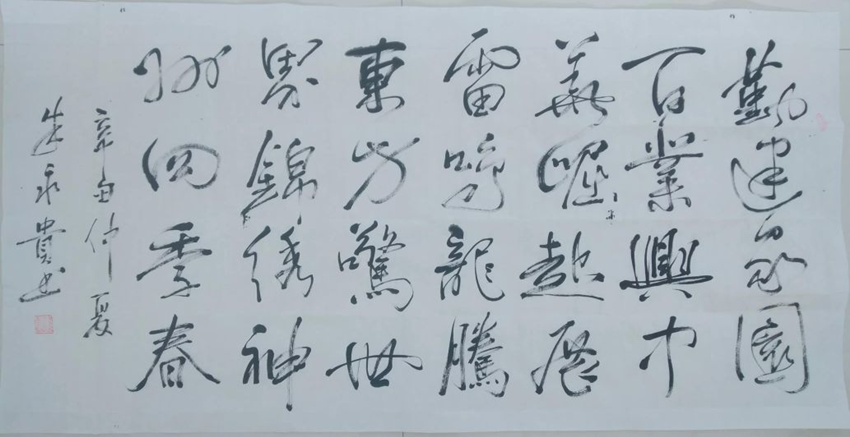 勤建家園
百業興中
華崛起展
雷鳴龍騰
東方驚世
界錦綉神
州四季春
辛丑仲夏
貴书